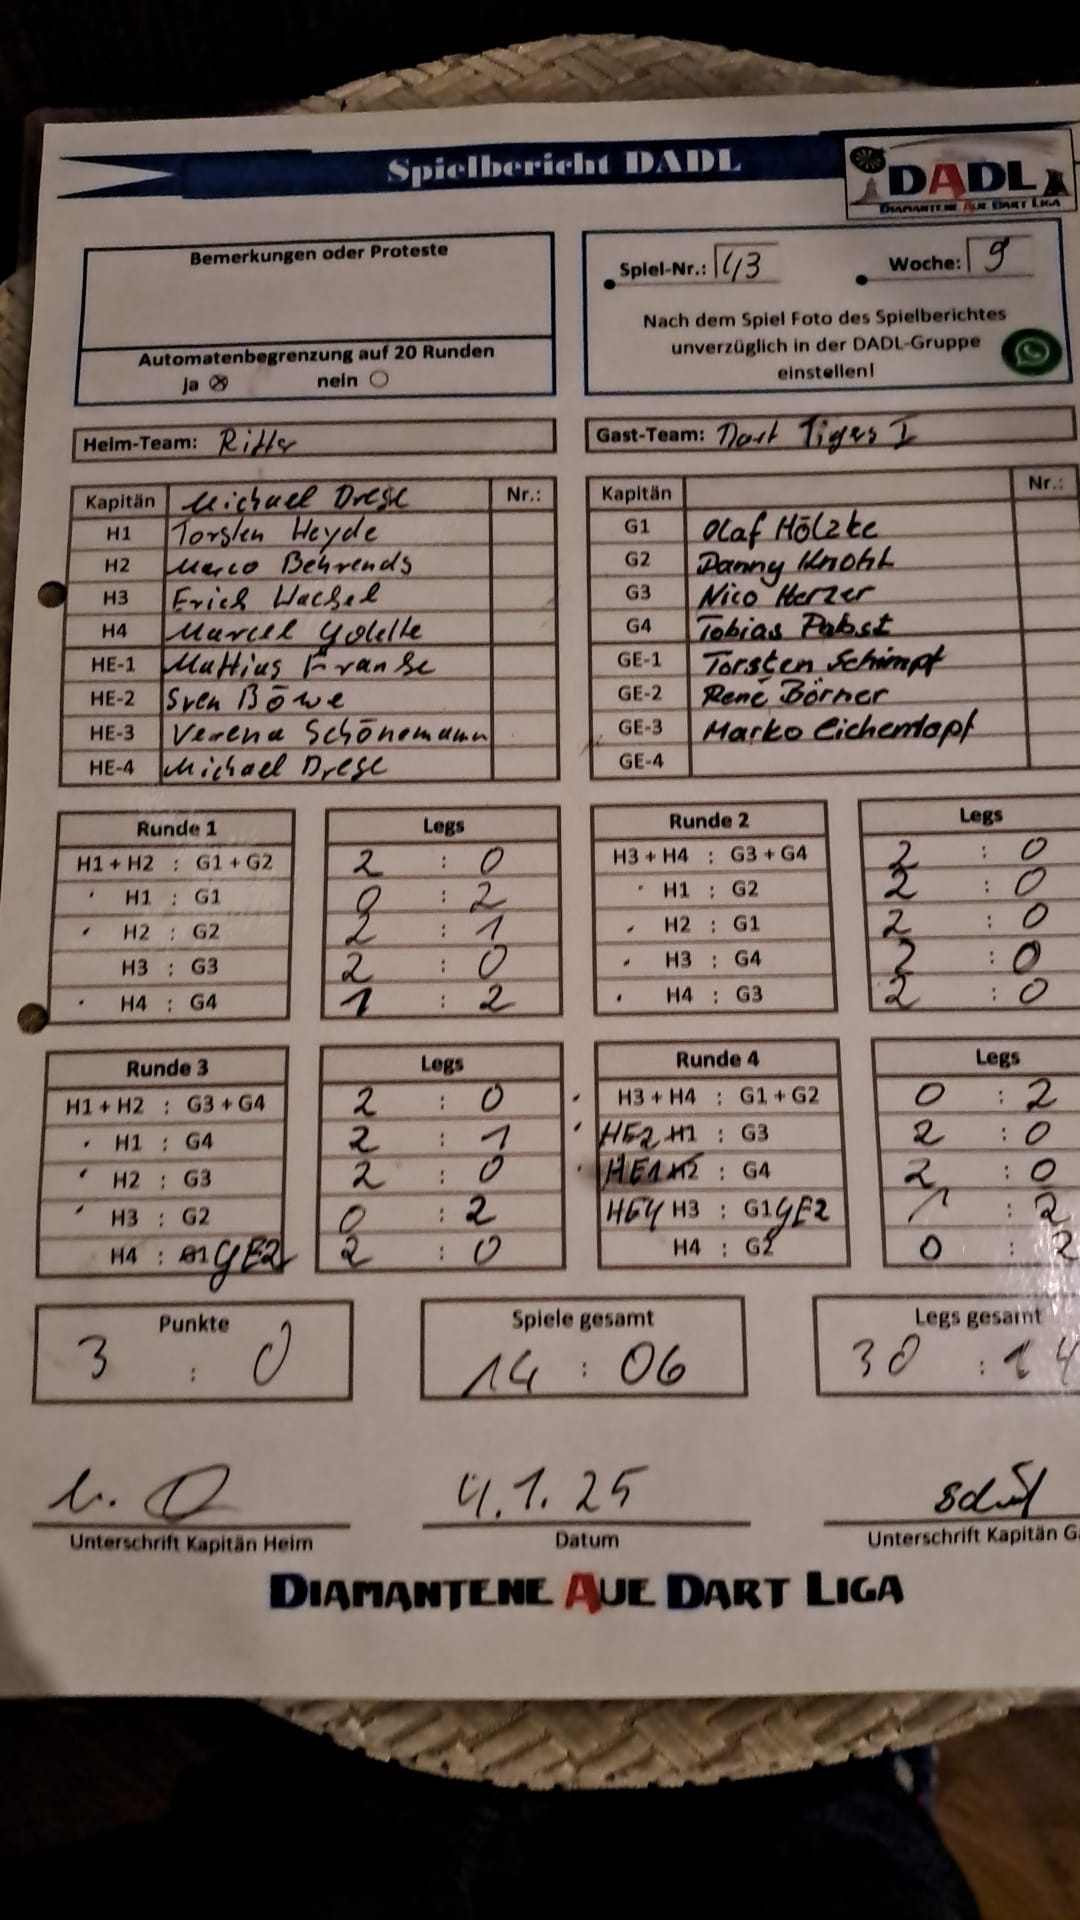 Spielbericht DADL
DADL
DIAMANTENE AUE DART LIGA
Bemerkungen oder Proteste
Automatenbegrenzung auf 20 Runden
ja ⊗ nein ○
Spiel-Nr.: 43 Woche: 9
Nach dem Spiel Foto des Spielberichtes
unverzüglich in der DADL-Gruppe
einstellen!
Heim-Team: Ritter
Gast-Team: Dart Tigers I
Kapitän Michael Drese Nr.:
H1 Torsten Heyde
H2 Marco Behrends
H3 Erich Wachsel
H4 Marcel
HE-1 Mattias Franke
HE-2 Sven Böwe
HE-3 Verena Schönemann
HE-4 Michael Drese
Kapitän Nr.:
G1 Olaf Hölzke
G2 Danny Knohl
G3 Nico Herzer
G4 Tobias Pabst
GE-1 Torsten Schimpf
GE-2 René Börner
GE-3 Marko Eichentopf
GE-4
Runde 1 Legs
H1 + H2 : G1 + G2 2 : 0
H1 : G1 0 : 2
H2 : G2 2 : 1
H3 : G3 2 : 0
H4 : G4 1 : 2
Runde 2 Legs
H3 + H4 : G3 + G4 2 : 0
H1 : G2 2 : 0
H2 : G1 2 : 0
H3 : G4 2 : 0
H4 : G3 2 : 0
Runde 3 Legs
H1 + H2 : G3 + G4 2 : 0
H1 : G4 2 : 1
H2 : G3 2 : 0
H3 : G2 0 : 2
H4 : G1 GE2 2 : 0
Runde 4 Legs
H3 + H4 : G1 + G2 0 : 2
HE2 H1 : G3 2 : 0
HE1 H2 : G4 2 : 0
HE4 H3 : G1 GE2 1 : 2
H4 : G2 0 : 2
Punkte
3 : 0
Spiele gesamt
14 : 06
Legs gesamt
30 : 14
4.1.25
Unterschrift Kapitän Heim
Datum
Unterschrift Kapitän Ga
DIAMANTENE AUE DART LIGA